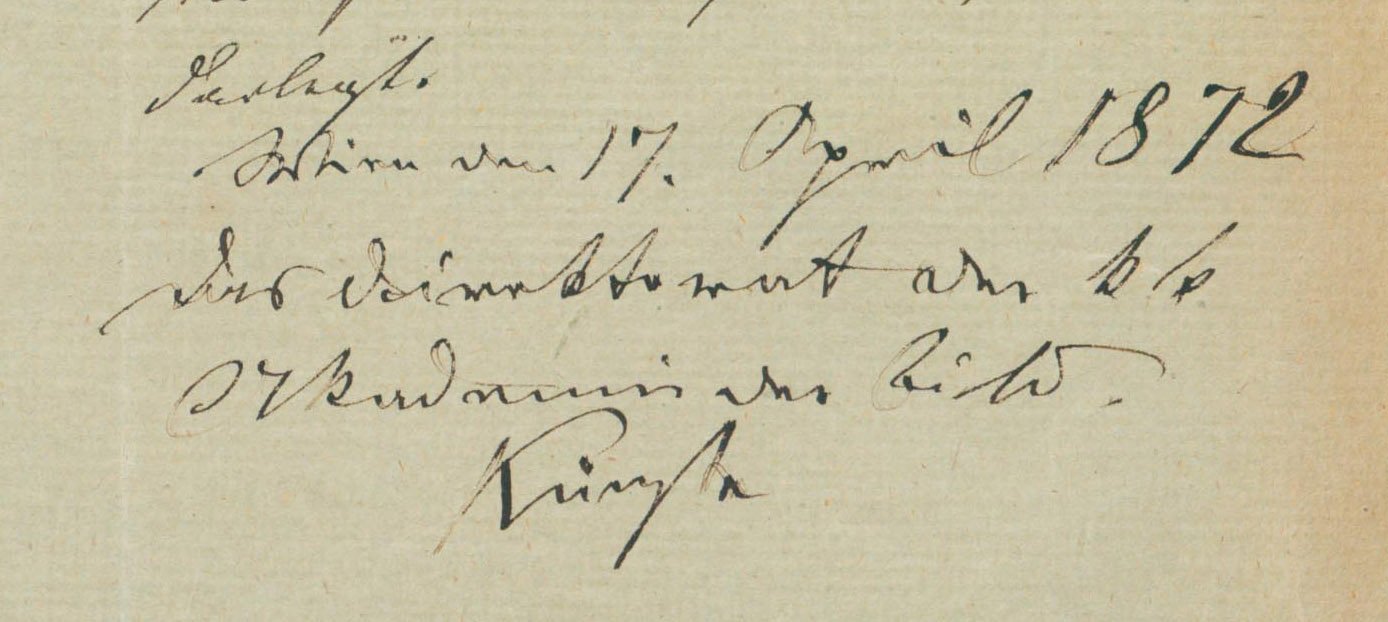 darlegt.
Wien den 17. April 1872
Das Direktorat der k k
Akademie der bild.
Künste